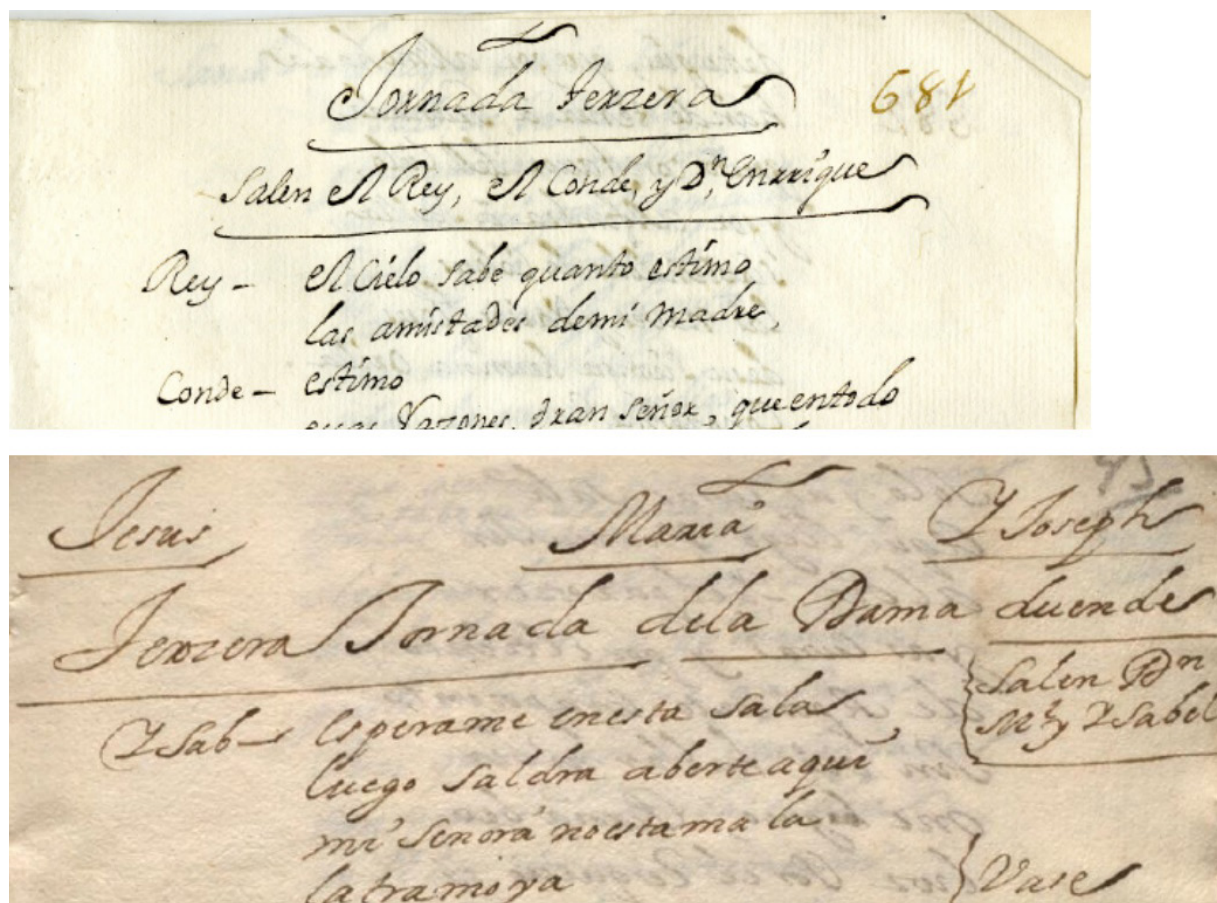 Jornada terzera 681
Salen el Rey, el Conde, y Dn, Enrrique
Rey - el Cielo sabe quanto estimo
las amistades demi Madre,
Conde - estimo
essas Razones, gran señor, que entodo
Jesus Maria Y Joseph
Terzera Jornada dela Dama duende
Ysab- esperame enesta sala Salen Dn
luego saldra aberte aqui Ml y Ysabel
mi Señora no esta mala
la tramoya Vase